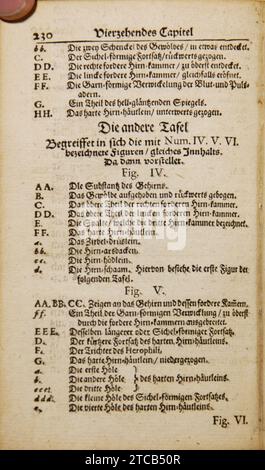 230 Vierzehendes Capitel
bb. Die zwey Schenckel des Gewölbes / in etwas entdecket.
C. Der Sichel-förmige Fortsatz / rückwerts gezogen.
DD. Die rechte fordere Hirn-kammer / zu öberst entdecket.
EE. Die lincke fordere Hirn-kammer / gleichfalls eröfnet.
FF. Die Garn-förmige Verwickelung der Blut- und Puls-
adern.
G. Ein Theil des hell-gläntzenden Spiegels.
HH. Das harte Hirn-häutlein / unterwerts gezogen.
Die andere Tafel
Begreiffet in sich die mit Num. IV. V. VI.
bezeichnete Figuren / gleiches Innhalts.
Da dann vorstellet
Fig. IV.
AA. Die Substantz des Gehirns.
B. Das Gewölbe aufgehoben und rückwerts gebogen.
C. Das obere Theil der rechten forderen Hirn-kammer.
DD. Das obere Theil der lincken forderen Hirn-kammer.
E. Die Spalte / welche die dritte Hirn-kammer bezeichnet.
FF. Das harte Hirn-häutlein.
a. Das Zirbel-drüslein.
bb. Die Hirn-arsbacken.
cc. Die Hirn-hödlein.
d. Die Hirn-schaam. Hiervon besihe die erste Figur der
folgenden Tafel.
Fig. V.
AA. BB. CC. Zeigen an das Gehirn und dessen fordere Kamern.
ff. Ein Theil der Garn-förmigen Verwicklung / zu öberst
durch die fordere Hirn-kammern ausgebreitet.
EEE. Desselben längerer oder Sichel-förmiger Fortsatz.
D. Der kürtzere Fortsatz des harten Hirn-häutleins.
F. Der Trichter des Herophili.
G. Das harte Hirn-häutlein / niedergezogen.
a. Die erste Höle
b. Die andere Höle des harten Hirn-häutleins.
ccc. Die dritte Höle
ddd. Die kleine Höle des Sichel-förmigen Fortsatzes.
e. Die vierte Höle des harten Hirn-häutleins.
Fig. VI.
alamy
2TCB50R